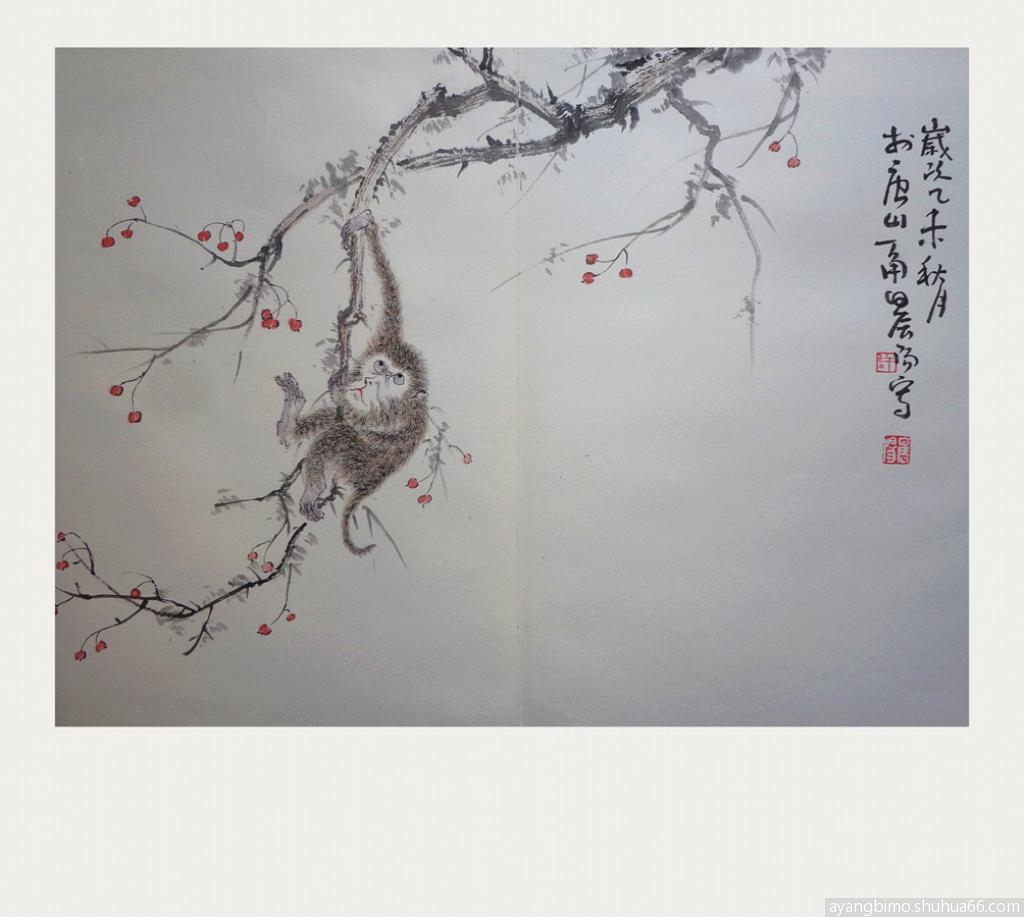 歲次乙未秋月
於唐山甬晨陽寫
ayangbimo.shuhua66.com